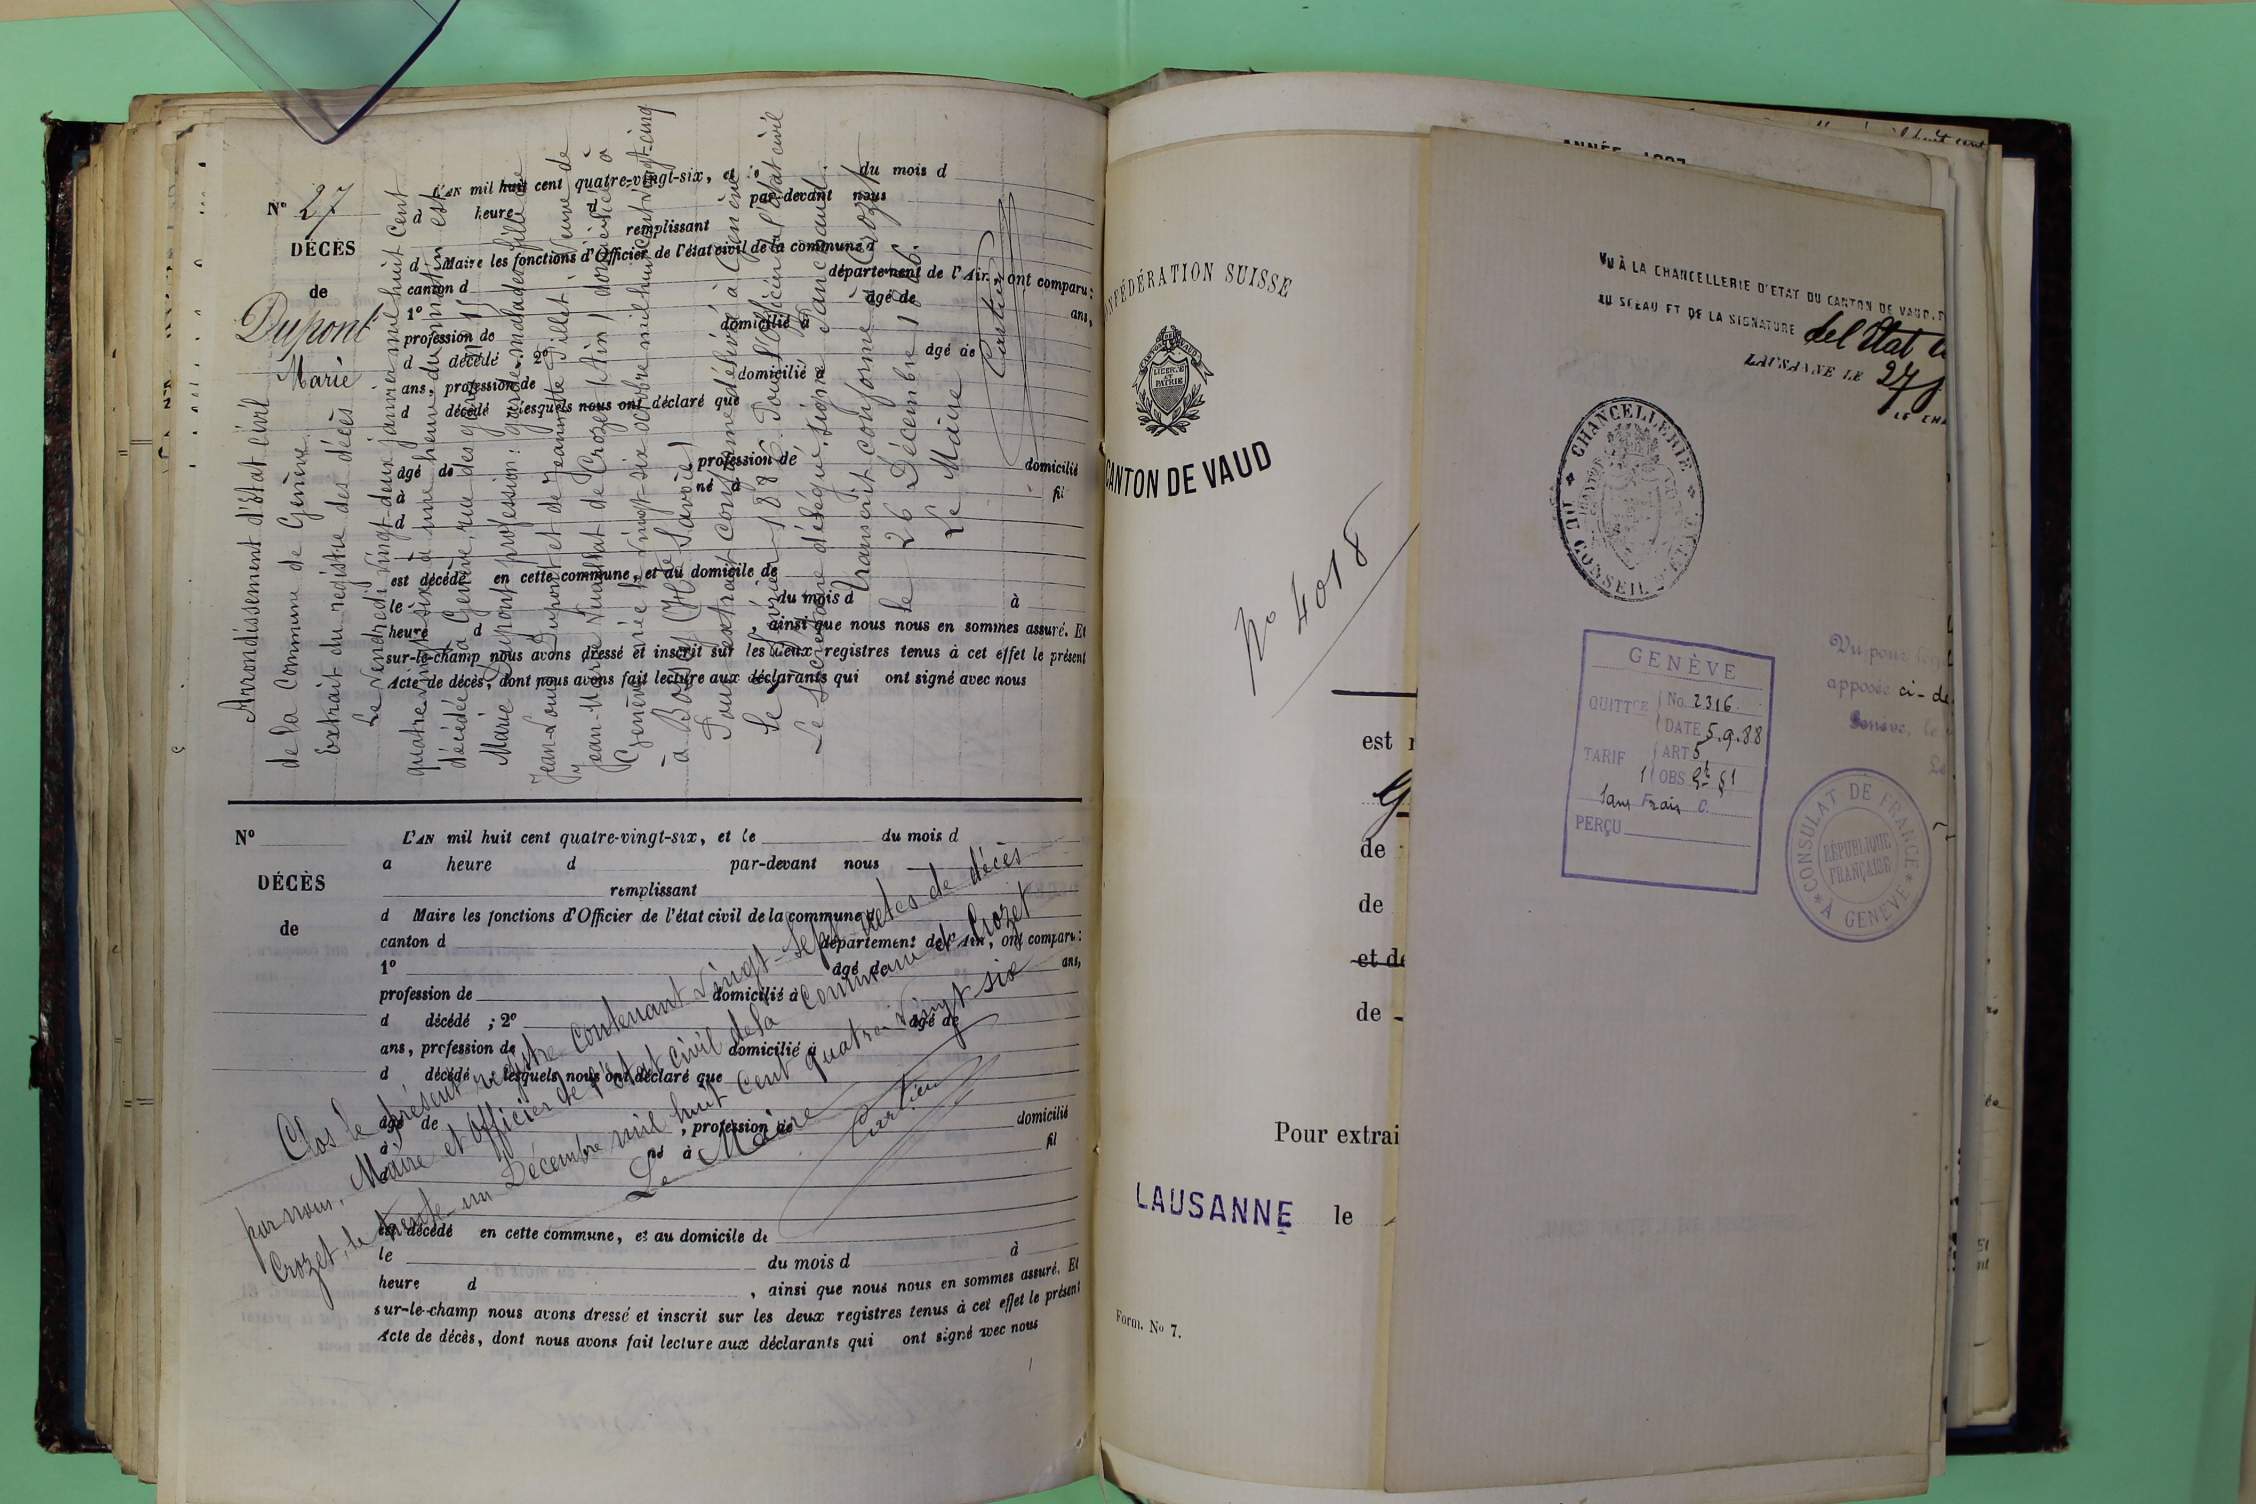 N° 27
DÉCÈS
de
Dupont
Marie
L'AN mil huit cent quatre-vingt-six, et le du mois d
à heure d par-devant nous
remplissant
d Maire les fonctions d'Officier de l'état civil de la commune d
canton d département de l'Ain, ont comparu:
1° âgé de ans,
profession de domicilié à
d décédé 2° âgé de
ans, profession de domicilié à
d décédé lesquels nous ont déclaré que
âgé de profession de domicilié
à né à fil
d
est décédé en cette commune, et au domicile de
le du mois d à
heure d , ainsi que nous nous en sommes assuré. Et
sur-le-champ nous avons dressé et inscrit sur les deux registres tenus à cet effet le présent
Acte de décès, dont nous avons fait lecture aux déclarants qui ont signé avec nous
Arrondissement d'Etat civil
de la Commune de Genève
Extrait du registre des décès
Le vendredi vingt-deux janvier mil huit cent
quatre vingt-six à une heure du matin est
décédée à Genève, rue des
Marie Dupont profession: garde-malades fille de
Jean-Louis Dupont et de Jeannette Gillet, veuve de
Jean-Marie de Crozet (Ain) domiciliée à
Genève née le vingt-six octobre mil huit cent vingt-cinq
à (Hte Savoie)
Pour extrait conforme délivré à Genève
le février 1886. Pour l'Officier de l'état civil
Le Secrétaire délégué, signé
Transcrit conforme à Crozet
le 26 Décembre 1886.
Le Maire
Cartier
N°
DÉCÈS
de
L'AN mil huit cent quatre-vingt-six, et le du mois d
a heure d par-devant nous
remplissant
d Maire les fonctions d'Officier de l'état civil de la commune d
canton d département de l'Ain, ont comparu:
1° âgé de ans,
profession de domicilié à
d décédé ; 2° âgé de
ans, profession de domicilié à
d décédé lesquels nous ont déclaré que
âgé de , profession de domicilié
à né à fil
est décédé en cette commune, et au domicile de
le du mois d à
heure d , ainsi que nous nous en sommes assuré. Et
sur-le-champ nous avons dressé et inscrit sur les deux registres tenus à cet effet le présent
Acte de décès, dont nous avons fait lecture aux déclarants qui ont signé avec nous
Clos le présent registre contenant vingt-sept actes de décès
par nous, Maire et Officier de l'état civil de la commune de Crozet
Crozet, le trente-un Décembre mil huit cent quatre vingt six
Le Maire
Cartier
CONFÉDÉRATION SUISSE
CANTON DE VAUD
LIBERTÉ
ET
PATRIE
CANTON DE VAUD
No 4018
est
de
de
et de
de
Pour extrai
LAUSANNE le
Form. No 7.
ANNÉE 1887
VU À LA CHANCELLERIE D'ETAT DU CANTON DE VAUD.P
AU SCEAU ET DE LA SIGNATURE del Etat
LAUSANNE LE 27
LE CHA
CHANCELLERIE
DU CONSEIL D'ETAT
GENÈVE
QUITTCE No 2316
DATE 5.9.88
TARIF ART 5
OBS
Sans Frais
PERÇU
Vu pour
apposée ci-de
Genève, le
Le
CONSULAT DE FRANCE
À GENÈVE
RÉPUBLIQUE
FRANÇAISE